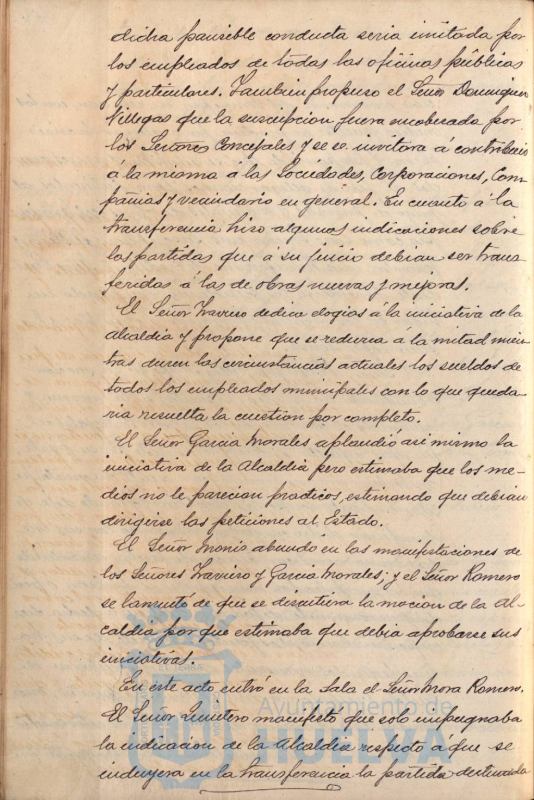 dicha pausible conducta seria imitada por
los empleados de todas las oficinas públicas
y particulares. Tambien propuso el Señor Dominguez
Villegas que la suscripcion fuera encabezada por
los Señores Concejales y se invitara á contribuir
á la misma á las Sociedades, Corporaciones, Com-
pañias y vecindario en general. En cuanto á la
transferencia hizo algunas indicaciones sobre
las partidas que á su juicio debian ser trans-
feridas á las de obras nuevas y mejoras.
El Señor Traviero dedica elogios á la iniciativa de la
Alcaldia y propone que se reduzca á la mitad mien-
tras duren las circunstancias actuales los sueldos de
todos los empleados municipales con lo que queda-
ria resuelta la cuestion por completo.
El Señor Garcia Morales aplaudió asi mismo la
iniciativa de la Alcaldia pero estimaba que los me-
dios no le parecian practicos, estimando que debian
dirigirse las peticiones al Estado.
El Señor Monis abundó en las manifestaciones de
los Señores Traviero y Garcia Morales; y el Señor Romero
se lamentó de que se discutiera la mocion de la Al-
caldia por que estimaba que debia aprobarse sus
iniciativas.
En este acto entró en la Sala el Señor Mora Romero.
El Señor Quintero manifestó que solo impugnaba
la indicacion de la Alcaldia respecto á que se
incluyera en la transferencia la partida destinada
Ayuntamiento de
HUELVA